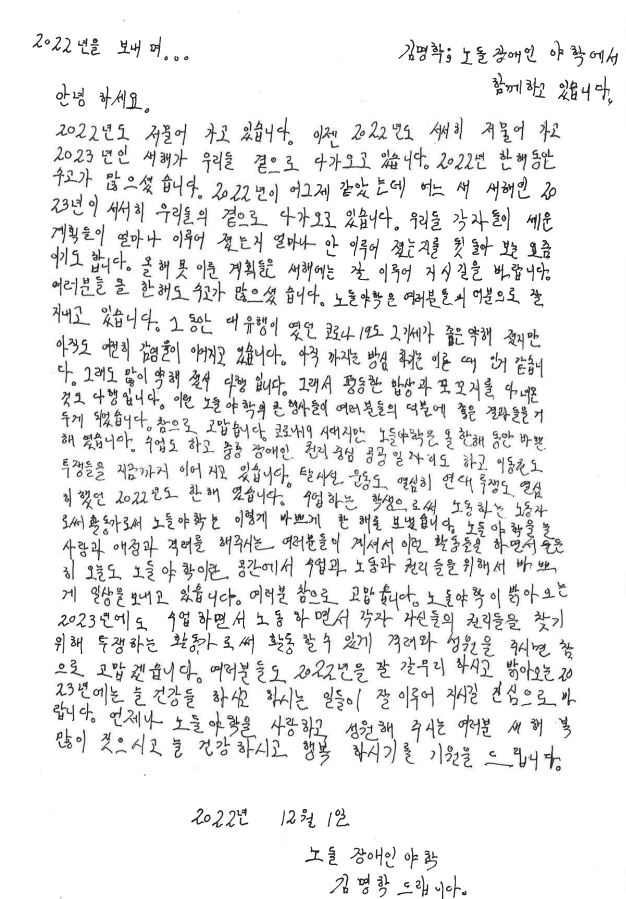 2022년을 보내며...
김명학; 노들장애인 야학에서
함께하고 있습니다.
안녕 하세요.
2022년도 저물어 가고 있습니다. 이젠 2022년도 서서히 저물어 가고
2023년인 새해가 우리들 곁으로 다가오고 있습니다. 2022년 한해동안
수고가 많으셨 습니다. 2022년이 어그제 같았는데 어느 새 새해인 20
23년이 서서히 우리들의 곁으로 다가오고 있습니다. 우리들 각자들이 세운
계획들이 얼마나 이루어 졌는지 얼마나 안 이루어 졌는지를 뒷돌아 보는 요즘
이기도 합니다. 올해 못 이룬 계획들은 새해에는 잘 이루어 지시길을 바랍니다.
여러분들 올 한해도 수고가 많으셨 습니다. 노들야학은 여러분들의 덕분으로 잘
지내고 있습니다. 그 동안 대 유행이 였던 코로나 19도 그기세가 좀은 약해 졌지만
아직도 여전히 감염들이 이어지고 있습니다. 아직 까지는 방심 하기는 이른 때 인거 같습니
다. 그래도 많이 약해 져서 다행 입니다. 그래서 평등한 밥상과 모꼬지를 다녀온
것도 다행입니다. 이런 노들야학의 큰 행사들이 여러분들의 덕분에 좋은 결과들을 거
두게 되었습니다. 참으로 고맙습니다. 코로나19 시대지만 노들야학은 올 한해 동안 바쁜
해 였습니다. 수업도 하고 중증 장애인 권리 중심 공공 일자리도 하고 이동권도
투쟁들을 지금까지 이어 지고 있습니다. 탈시설 운동도 열심히 연대 투쟁도 열심
히 했던 2022년도 한해 였습니다. 수업하는 학생으로써 노동하는 노동자
로써 활동가로써 노들야학는 이렇게 바쁘게 한 해를 보냈습니다. 노들야학을 늘
사랑과 애정과 격려를 해주시는 여러분들이 계셔서 이런 활동들을 하면서
히 오늘도 노들야학이란 공간에서 수업과 노동과 권리들을 위해서 바쁘
게 일상을 보내고 있습니다. 여러분 참으로 고맙 습니다. 노들야학이 밝아 오는
2023년에도 수업하면서 노동하면서 각자 자신들의 권리들을 찾기
위해 투쟁하는 활동가로써 활동할 수 있게 격려와 성원을 주시면 참
으로 고맙겠습니다. 여러분들도 2022년을 잘 갈무리 하시고 밝아오는 20
23년에는 늘 건강들 하시고 하시는 일들이 잘 이루어 지시길 진심으로 바
랍니다. 언제나 노들야학을 사랑하고 성원해 주시는 여러분 새해 복
많이 짓으시고 늘 건강하시고 행복 하시기를 기원을 드립니다.
2022년 12월 1일
노들 장애인야학
김명학 드립니다.